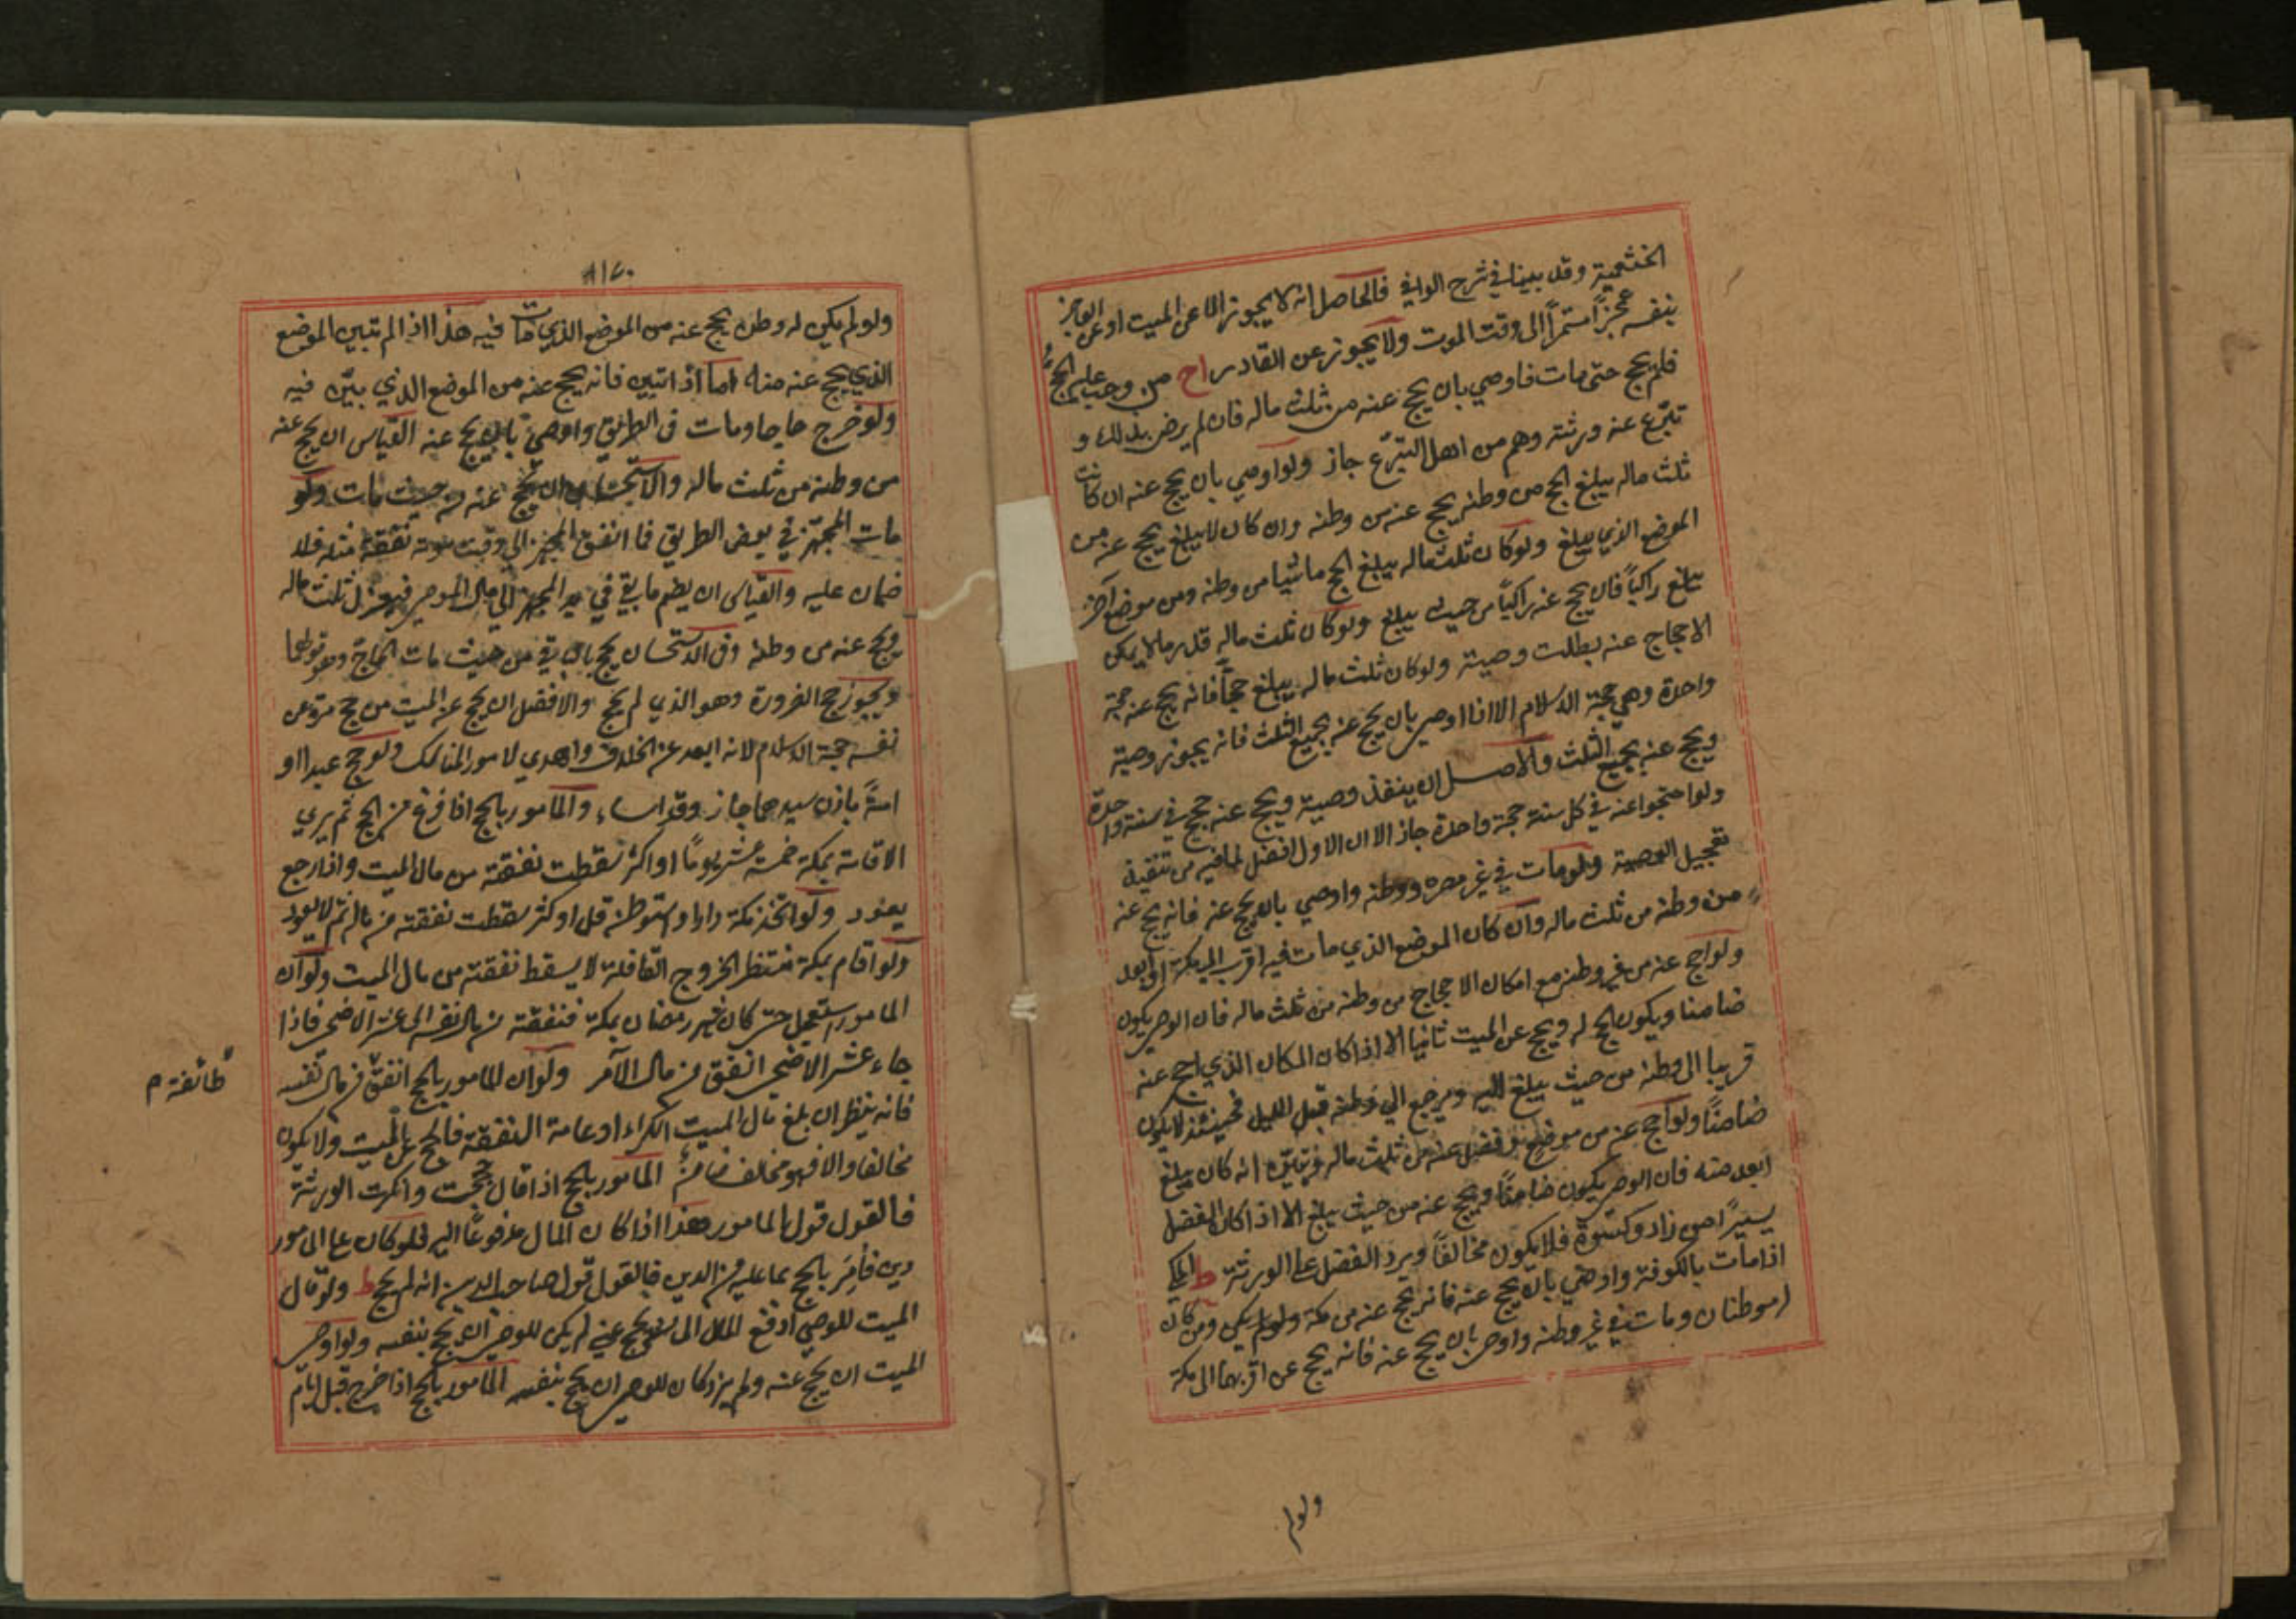 الخثعمية وقد بينا في شرح الوافي فالحاصل انه لا يجوز الا عن الميت او عن العاجز
بنفسه عجزاً مستمراً الى وقت الموت ولا يجوز عن القادر اح من وجب عليه الحج
فلم يحج حتى مات فاوصي بان يحج عنه من ثلث ماله فان لم يرض بذلك و
تبرّع عنه ورثته وهم من اهل التبرّع جاز ولو اوصي بان يحج عنه ان كانت
ثلث ماله يبلغ الحج من وطنه يحج عنه من وطنه وان كان لا يبلغ يحج عنه من
الموضع الذي يبلغ ولو كان ثلث ماله يبلغ الحج ماشيا من وطنه ومن موضع آخر
يبلغ راكباً فان يحج عنه راكباً من حيث يبلغ ولو كان ثلث ماله قدر ما لا يمكن
الاحجاج عنه بطلت وصيته ولو كان ثلث ماله يبلغ حججاً فانه يحج عنه حجة
واحدة وهي حجة الاسلام الا اذا اوصى بان يحج عنه بجميع الثلث فانه يجوز وصيته
ويحج عنه بجميع الثلث والاصل ان ينفذ وصيته ويحج عنه حجج في سنة واحدة
ولو احتجوا عنه في كل سنة حجة واحدة جاز الا ان الاول افضل لما فيه من تنفيذ
تعجيل الوصية ولو مات في غير مصره ووطنه واوصي بان يحج عنه فانه يحج عنه
من وطنه من ثلث ماله وان كان الموضع الذي مات فيه اقرب الى مكة او ابعد
ولو احج عنه من غير وطنه مع امكان الاحجاج من وطنه من ثلث ماله فان الوصي يكون
ضامنا ويكون الحج له ويحج عن الميت ثانيا الا اذا كان المكان الذي احج عنه
قريبا الى وطنه من حيث يبلغ اليه ويرجع الي وطنه قبل الليل فحينئذ لا يكون
ضامنًا ولو احج عنه من موضع وفضل عنه من ثلث ماله وتبيّن انه كان يبلغ
ابعد منه فان الوصي يكون ضامنًا ويحج عنه من حيث يبلغ الا اذا كان الفضل
يسيرًا من زاد وكسوة فلا يكون مخالفًا ويرد الفضل على الورثة ط المكي
اذا مات بالكوفة واوصي بان يحج عنه فانه يحج عنه من مكة ومن كان
له وطنان ومات في غير وطنه واوصى بان يحج عنه فانه يحج عن اقربهما الى مكة
ولو لم
٨١٧٠
ولو لم يكن له وطن يحج عنه من الموضع الذي مات فيه هذا اذا لم تبين الموضع
الذي يحج عنه منه اما اذا تبين فانه يحج عنه من الموضع الذي بيّن فيه
ولو خرج حاجا ومات في الطريق واوصي بان يحج عنه القياس ان يحج عنه
من وطنه من ثلث ماله والاستحسان ان يحج عنه من حيث مات ولو
مات المجهّز في بعض الطريق فما انفق المجهز الى وقت موته نفقة مثله فلا
ضمان عليه والقياس ان يضم ما بقي في يد المجهز الي مال الموصى فيعزل ثلث ماله
ويحج عنه من وطنه وفي الاستحسان يحج بالباقي من حيث مات الحاج وهو قولهما
ويجوز حج الضرورة وهو الذي لم يحج والافضل ان يحج عن الميت من حج مرة عن
نفسه حجة الاسلام لانه ابعد عن الخلاف واهدي لامور المناسك ولو حج عبدا او
امةً باذن سيدهما جاز وقد اساء والمامور بالحج اذا فرغ من الحج ثم يري
الاقامة بمكة خمسة عشر يومًا او اكثر سقطت نفقته من مال الميت واذا رجع
يعود ولو اتخذ مكة دارا واستوطنه قل او كثر سقطت نفقته من ماله ثم لا يعود
ولو اقام بمكة منتظر الخروج القافلة لا يسقط نفقته من مال الميت ولو ان
المامور استعجل حتى كان شهر رمضان بمكة فنفقته من مال نفسه الى عشر الاضحى فاذا
جاء عشر الاضحى انفق من مال الآمر ولو ان المامور بالحج انفق من مال نفسه
فانه ينظر ان بلغ مال الميت الكراء او عامة النفقة فالحج عن الميت ولا يكون
مخالفا والا فهو مخالف ضامن المامور بالحج اذا قال حججت وانكرت الورثة
فالقول قول المامور هذا اذا كان المال مدفوعًا اليه فلو كان على المامور
دين فأمر بالحج بما عليه من الدين فالقول قول صاحب الدين انه لم يحج ط ولو قال
الميت للوصي ادفع المال الى من يحج عني لم يكن للوصي ان يحج بنفسه ولو اوصى
الميت ان يحج عنه ولم يزد كان للوصي ان يحج بنفسه المامور بالحج اذا خرج قبل ايام
طائفة م